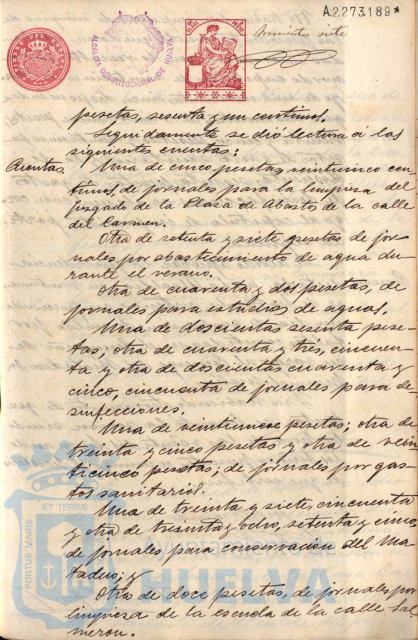 A2.273.189*
ALCALDIA CONSTITUCIONAL DE HUELVA
veinte
pesetas, sesenta y un centimos.
Seguidamente se dió lectura a las
siguientes cuentas:
Cuentas
Una de cinco pesetas veinticinco cen
timos de jornales para la limpieza del
Juzgado de la Plaza de Abastos de la calle
del Carmen.
Otra de setenta y siete pesetas de jor
nales por abastecimiento de agua du-
rante el verano.
Otra de cuarenta y dos pesetas, de
jornales para estudios de aguas.
Una de doscientas sesenta pese-
tas, otra de cuarenta y trés, cincuen-
ta y otra de doscientas cuarenta y
cinco, cincuenta de jornales para de-
sinfecciones.
Una de veintinueve pesetas; otra de
treinta y cinco pesetas y otra de vein
ticinco pesetas; de jornales por gas-
tos sanitarios.
Una de treinta y siete, cincuenta
y otra de treinta y ocho, setenta y cinco
de jornales para conservación del Ma
tadero; y
Otra de doce pesetas, de jornales por
limpieza de la escuela de la calle La
meron.
PORTUS MARIS ET TERRÆ
HUELVA